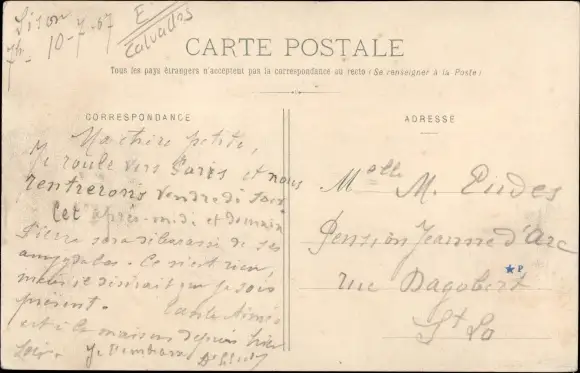 Lison
7h - 10-7-07
E
Calvados
CARTE POSTALE
Tous les pays étrangers n'acceptent pas la correspondance au recto (Se renseigner à la Poste)
CORRESPONDANCE
Ma chère petite,
Je roule vers Paris et nous
rentrerons vendredi soir
Cet après-midi et demain
Pierre sera débarassé de ses
amygdales. Ce n'est rien,
mais il désirait que je sois
présent. Tante Aimée
est à la maison depuis hier
soir. Je t'embrasse
ADRESSE
Melle M. Eudes
Pension Jeanne d'Arc
rue Dagobert
St Lo